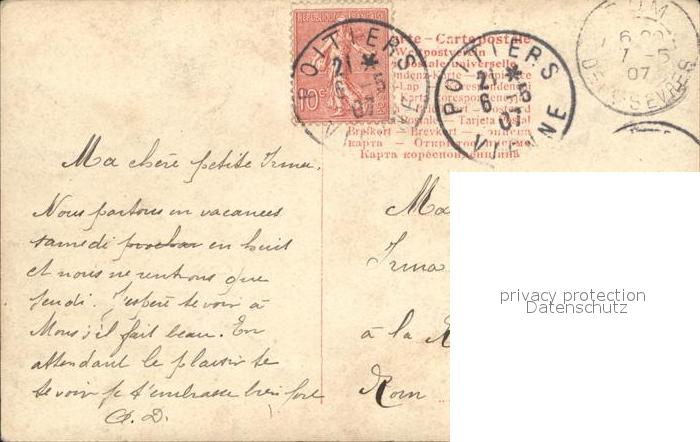 RÉPUBLIQUE FRANÇAISE
10c
POITIERS
21 * 5
6 07
VIENNE
POITIERS
21 * 5
6 07
VIENNE
7-5
07
DEUX-SEVRES
Carte – Cartepostale
Weltpostverein
postale universelle
Karta korespondencyjna
Tarjeta postal
Brefkort – Brevkort –
карта – Открытое письмо
Карта кореспонденциина
Ma chère petite Irma,
Nous partons en vacances
samedi prochain en huit
et nous ne rentrons que
jeudi. J'espère te voir à
Mons s'il fait beau. En
attendant le plaisir de
te voir je t'embrasse bien fort
A.D.
Ma
Irma
à la
Rom
privacy protection
Datenschutz